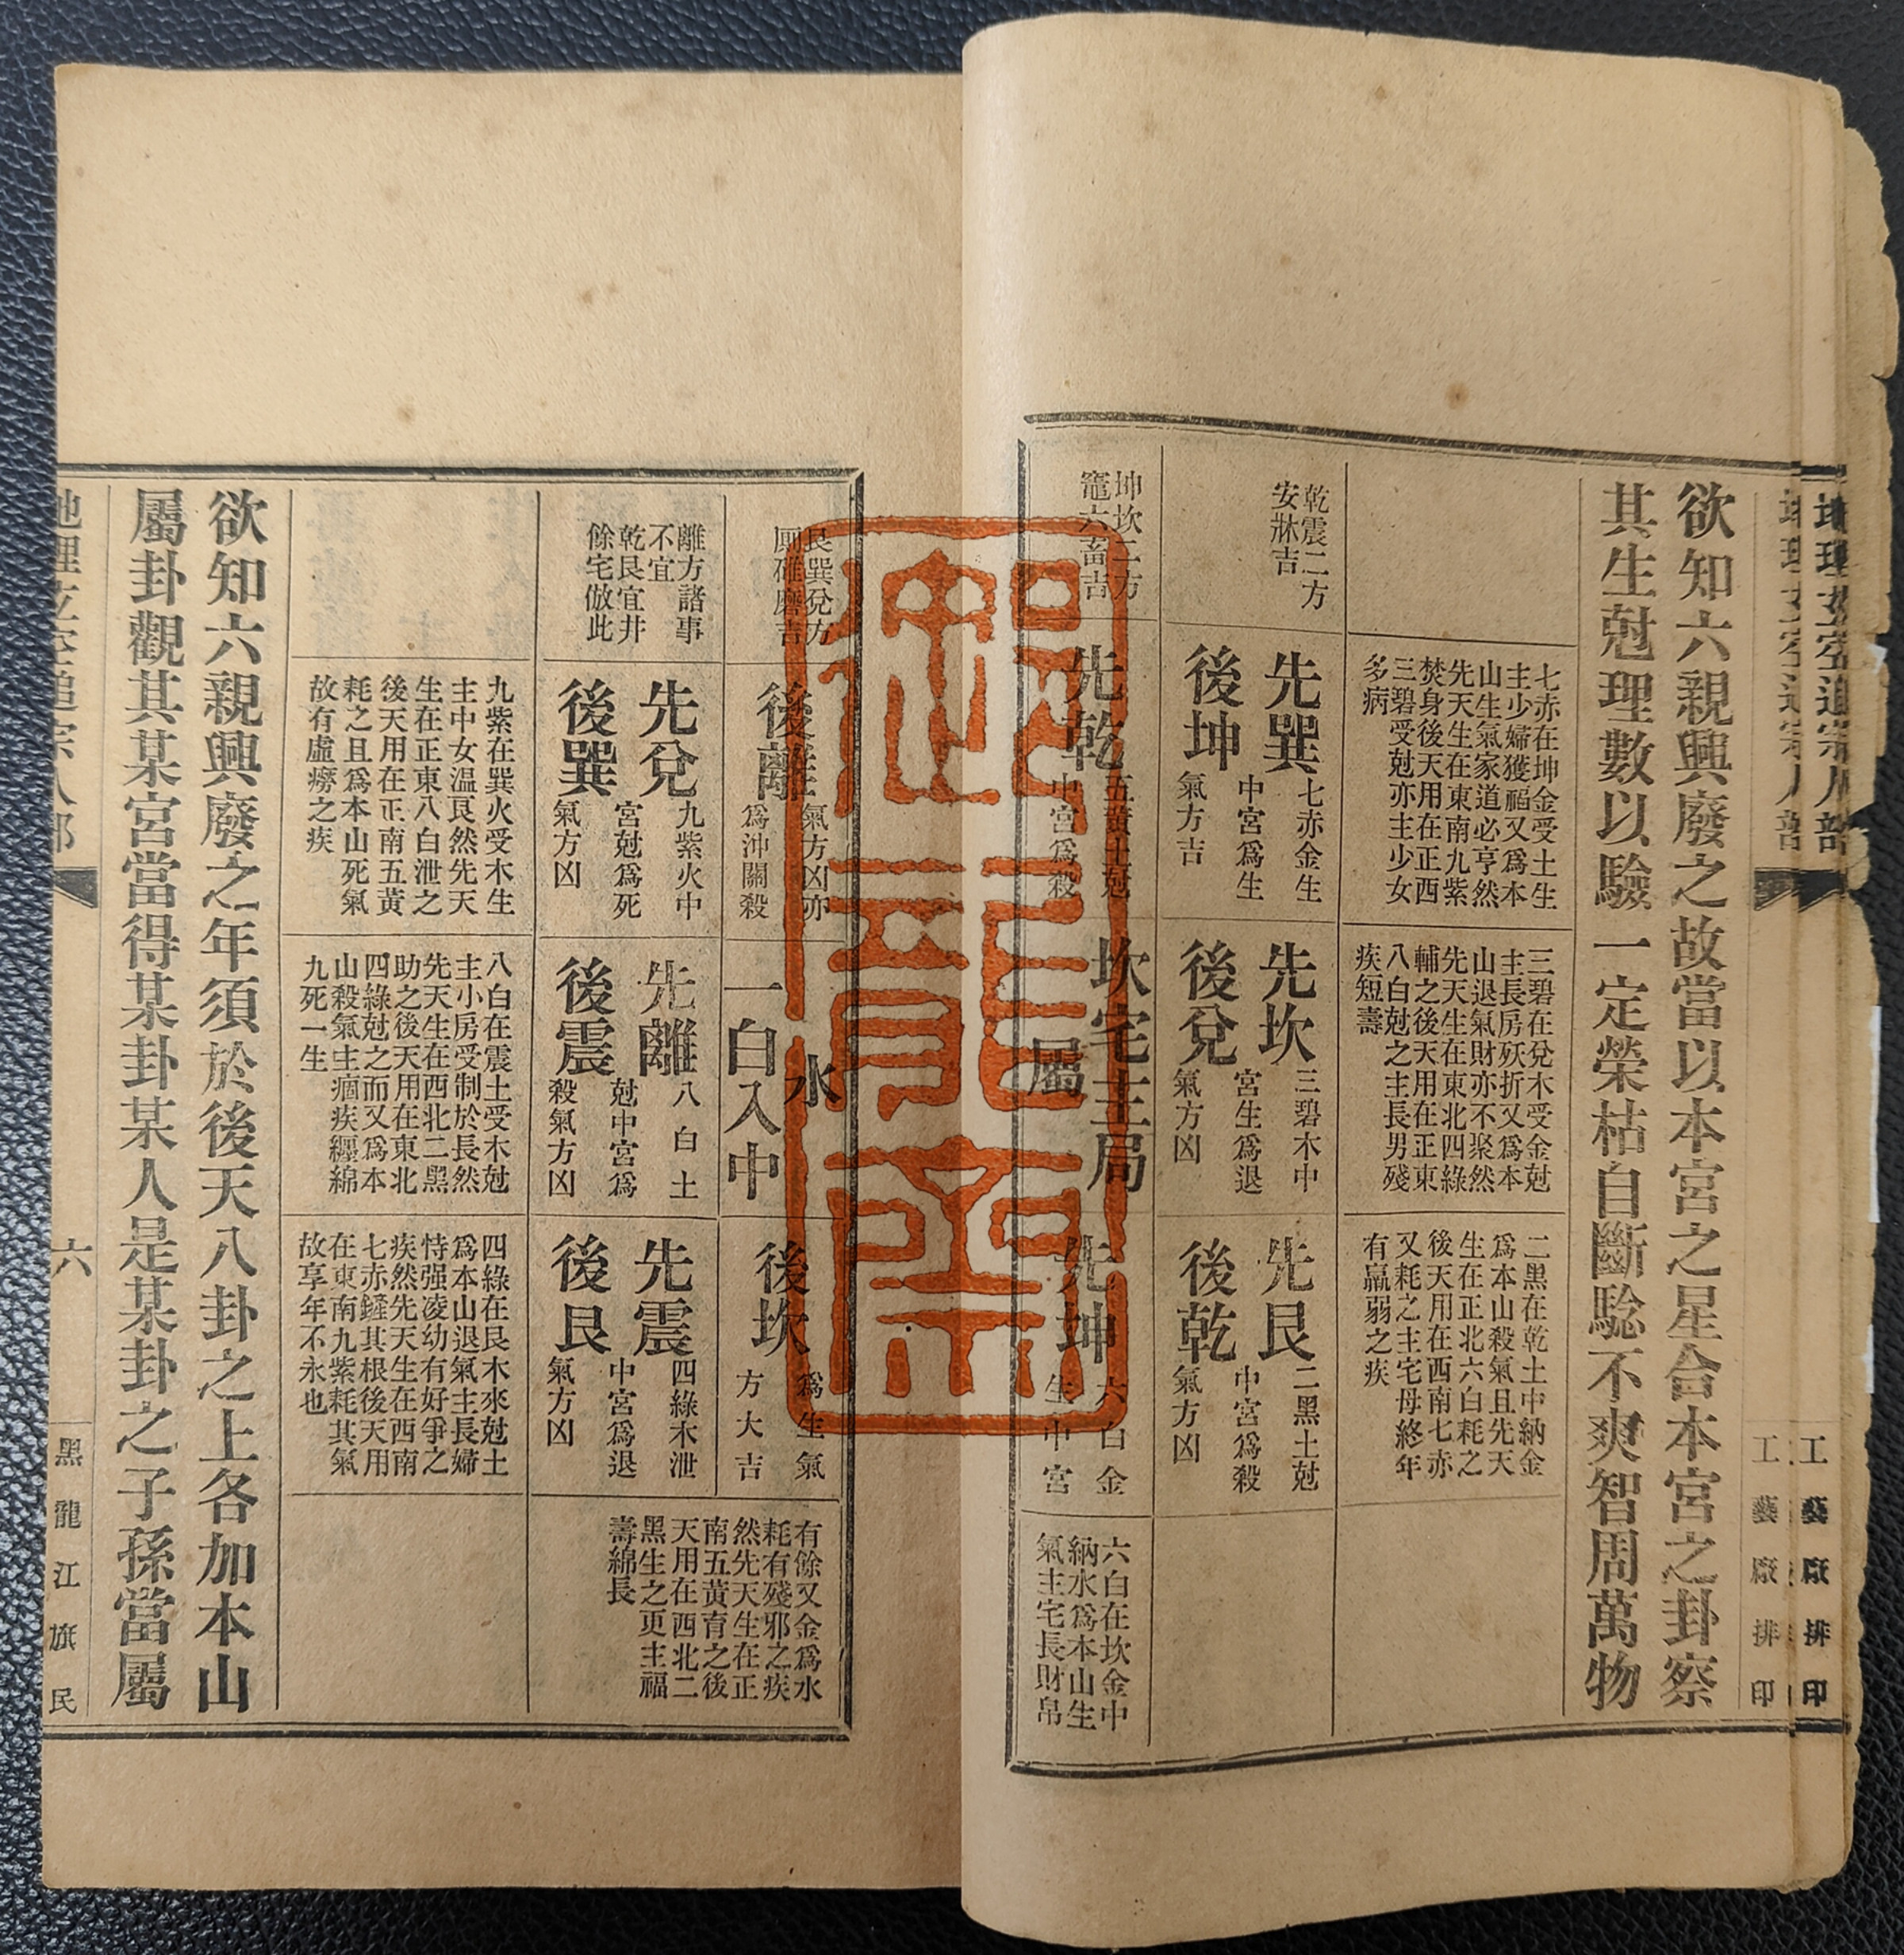 工藝廠排印
欲知六親興廢之故當以本宮之星合本宮之卦察
其生尅理數以驗一定榮枯自斷騐不爽智周萬物
七赤在坤金受土生
主少婦獲福又爲本
山生氣家道必亨然
先天生在東南九紫
焚身後天用在正西
三碧受尅亦主少女
多病
三碧在兌木受金尅
主長房殀折又爲本
山退氣財亦不聚然
先天生在東北四綠
輔之後天用在正東
八白尅之主長男殘
疾短壽
二黑在乾土中納金
爲本山殺氣且先天
生在正北六白耗之
後天用在西南七赤
又耗之主宅母終年
有羸弱之疾
乾震二方
安牀吉
先巽
後坤
七赤金生
中宮爲生
氣方吉
先坎
後兌
三碧木中
宮生爲退
氣方凶
先艮
後乾
二黑土尅
中宮爲殺
氣方凶
坤坎二方
竈六畜吉
先乾
五黃土尅
中宮爲殺
坎宅主局
屬
先坤
六白金
生中宮
六白在坎金中
納水爲本山生
氣主宅長財帛
艮巽兌方
厠碓磨吉
後離
氣方凶亦
爲沖關殺
水
一白入中
後坎
爲生氣
方大吉
有餘又金爲水
耗有殘邪之疾
然先天生在正
南五黃育之後
天用在西北二
黑生之更主福
壽綿長
離方諸事
不宜
乾艮宜井
餘宅倣此
先兌
後巽
九紫火中
宮尅爲死
氣方凶
先離
後震
八白土
尅中宮爲
殺氣方凶
先震
後艮
四綠木泄
中宮爲退
氣方凶
九紫在巽火受木生
主中女温良然先天
生在正東八白泄之
後天用在正南五黃
耗之且爲本山死氣
故有虛癆之疾
八白在震土受木尅
主小房受制於長然
先天生在西北二黑
助之後天用在東北
四綠尅之而又爲本
山殺氣主痼疾纒綿
九死一生
四綠在艮木來尅土
爲本山退氣主長婦
恃强凌幼有好爭之
疾然先天生在西南
七赤鏟其根後天用
在東南九紫耗其氣
故享年不永也
欲知六親興廢之年須於後天八卦之上各加本山
屬卦觀其某宮當得某卦某人是某卦之子孫當屬
地理玄空追宗人部
六
黑龍江旗民